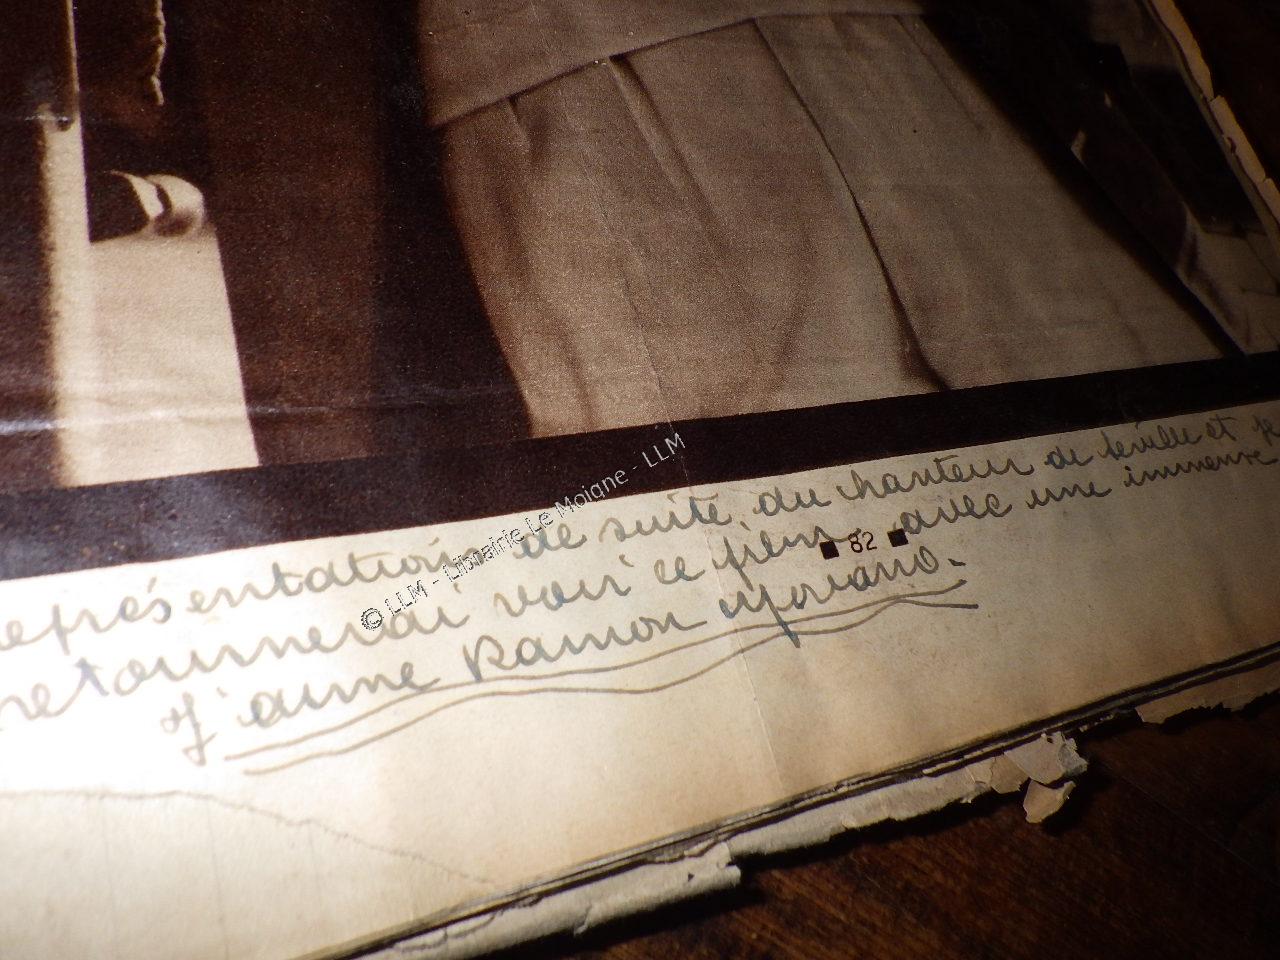 représentation de suite du chanteur de Séville et je
retournerai voir ce film avec une immense
■ 82 ■
J'aime Ramon Novarro.
© LLM - Librairie Le Moigne - LLM